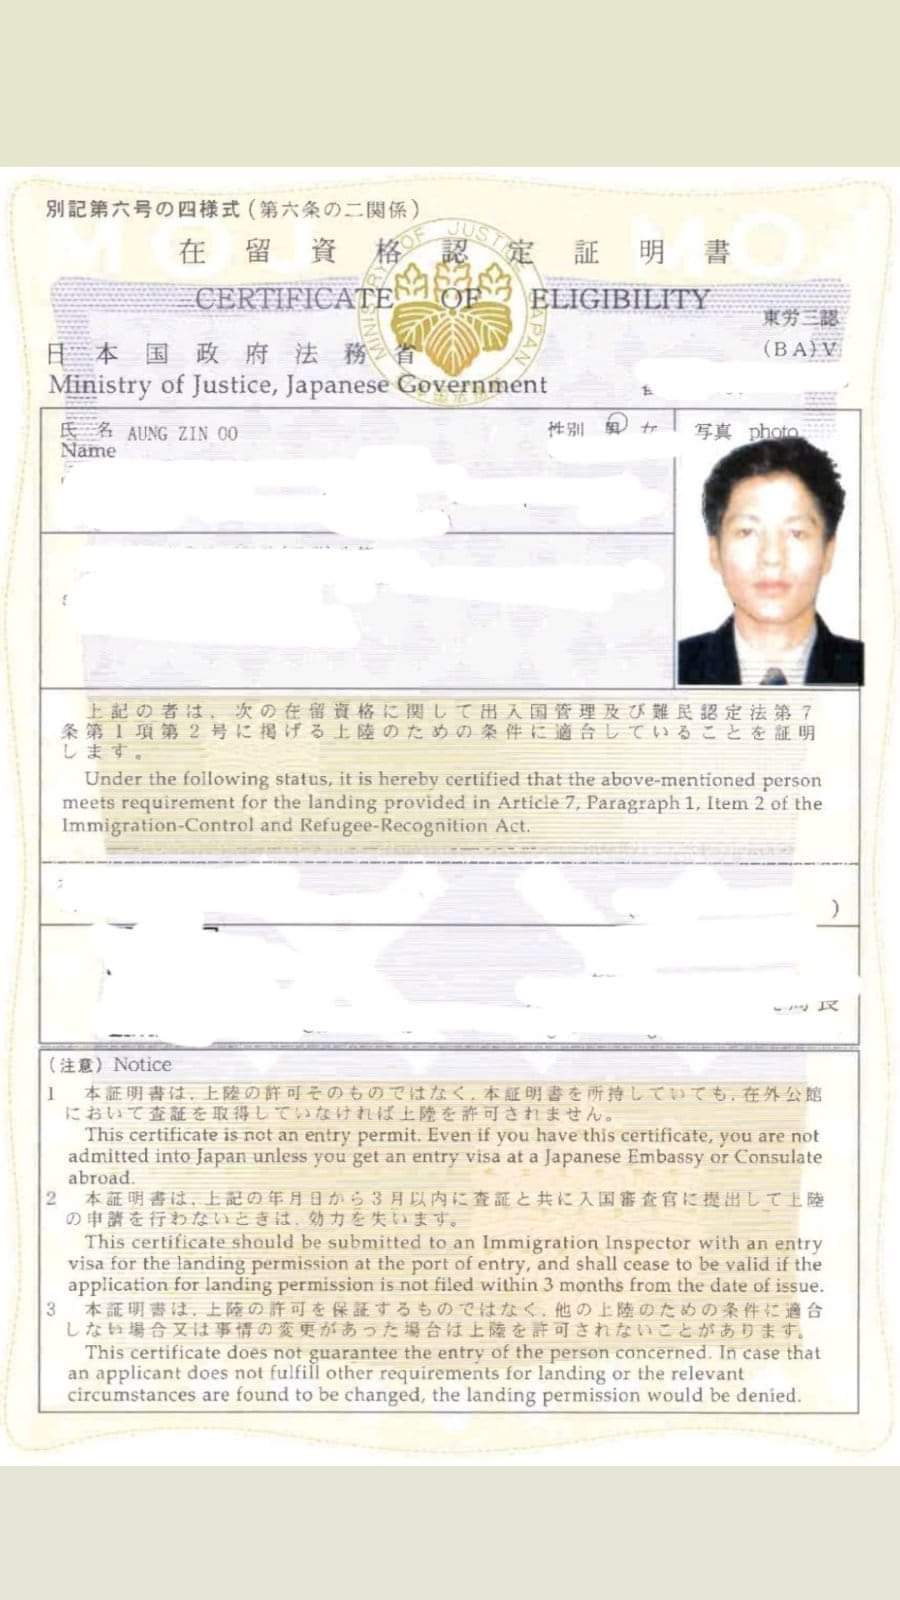 別記第六号の四様式（第六条の二関係）
在留資格認定証明書
CERTIFICATE OF ELIGIBILITY
東労三認
日本国政府法務省
(BA)V
Ministry of Justice, Japanese Government
MINISTRY OF JUSTICE JAPAN
氏名 AUNG ZIN OO 性別 男 女 写真 photo
Name
上記の者は、次の在留資格に関して出入国管理及び難民認定法第7
条第1項第2号に掲げる上陸のための条件に適合していることを証明
します。
Under the following status, it is hereby certified that the above-mentioned person
meets requirement for the landing provided in Article 7, Paragraph 1, Item 2 of the
Immigration-Control and Refugee-Recognition Act.
)
局長
(注意) Notice
1 本証明書は、上陸の許可そのものではなく、本証明書を所持していても、在外公館
において査証を取得していなければ上陸を許可されません。
This certificate is not an entry permit. Even if you have this certificate, you are not
admitted into Japan unless you get an entry visa at a Japanese Embassy or Consulate
abroad.
2 本証明書は、上記の年月日から3月以内に査証と共に入国審査官に提出して上陸
の申請を行わないときは、効力を失います。
This certificate should be submitted to an Immigration Inspector with an entry
visa for the landing permission at the port of entry, and shall cease to be valid if the
application for landing permission is not filed within 3 months from the date of issue.
3 本証明書は、上陸の許可を保証するものではなく、他の上陸のための条件に適合
しない場合又は事情の変更があった場合は上陸を許可されないことがあります。
This certificate does not guarantee the entry of the person concerned. In case that
an applicant does not fulfill other requirements for landing or the relevant
circumstances are found to be changed, the landing permission would be denied.